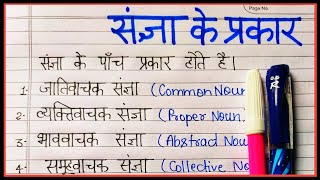 Page No.
संज्ञा के प्रकार
संज्ञा के पाँच प्रकार होते हैं।
1. जातिवाचक संज्ञा (Common Noun
2. व्यक्तिवाचक संज्ञा (Proper Noun.
3. भाववाचक संज्ञा (Abstrad Nou
4. समूहवाचक संज्ञा (Collective No